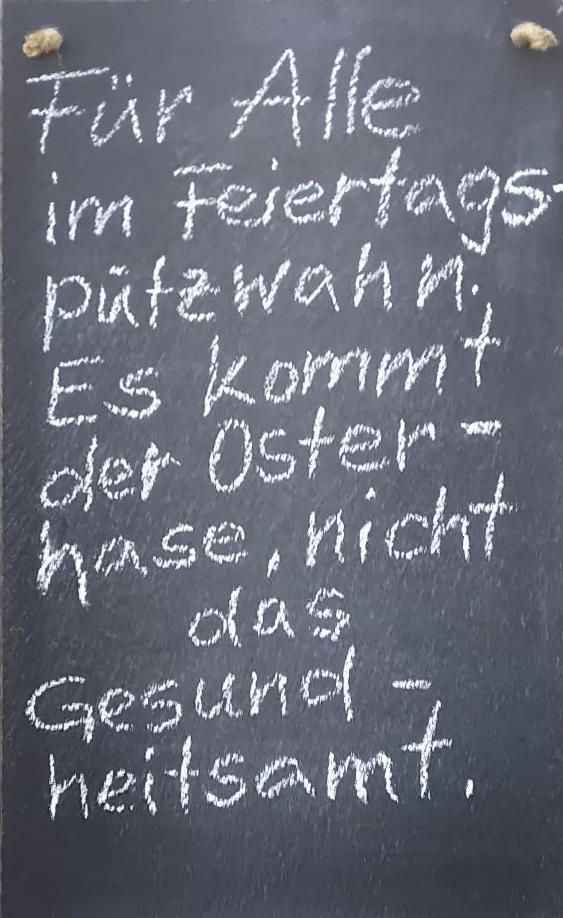 Für Alle
im Feiertags-
putzwahn.
Es kommt
der Oster-
hase, nicht
das
Gesund-
heitsamt.